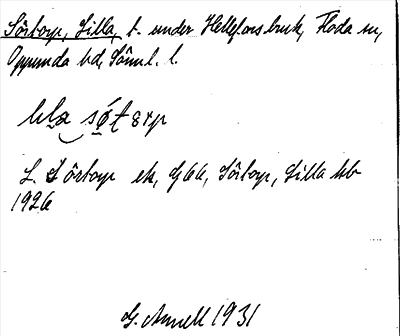 Sörtorp, Lilla, t. under Hellefors bruk, Floda sn,
Oppunda hd, Söml. l.
L. Sörtorp ek, G 66, Sörtorp, Lilla hb
1926
G. Amell 1931